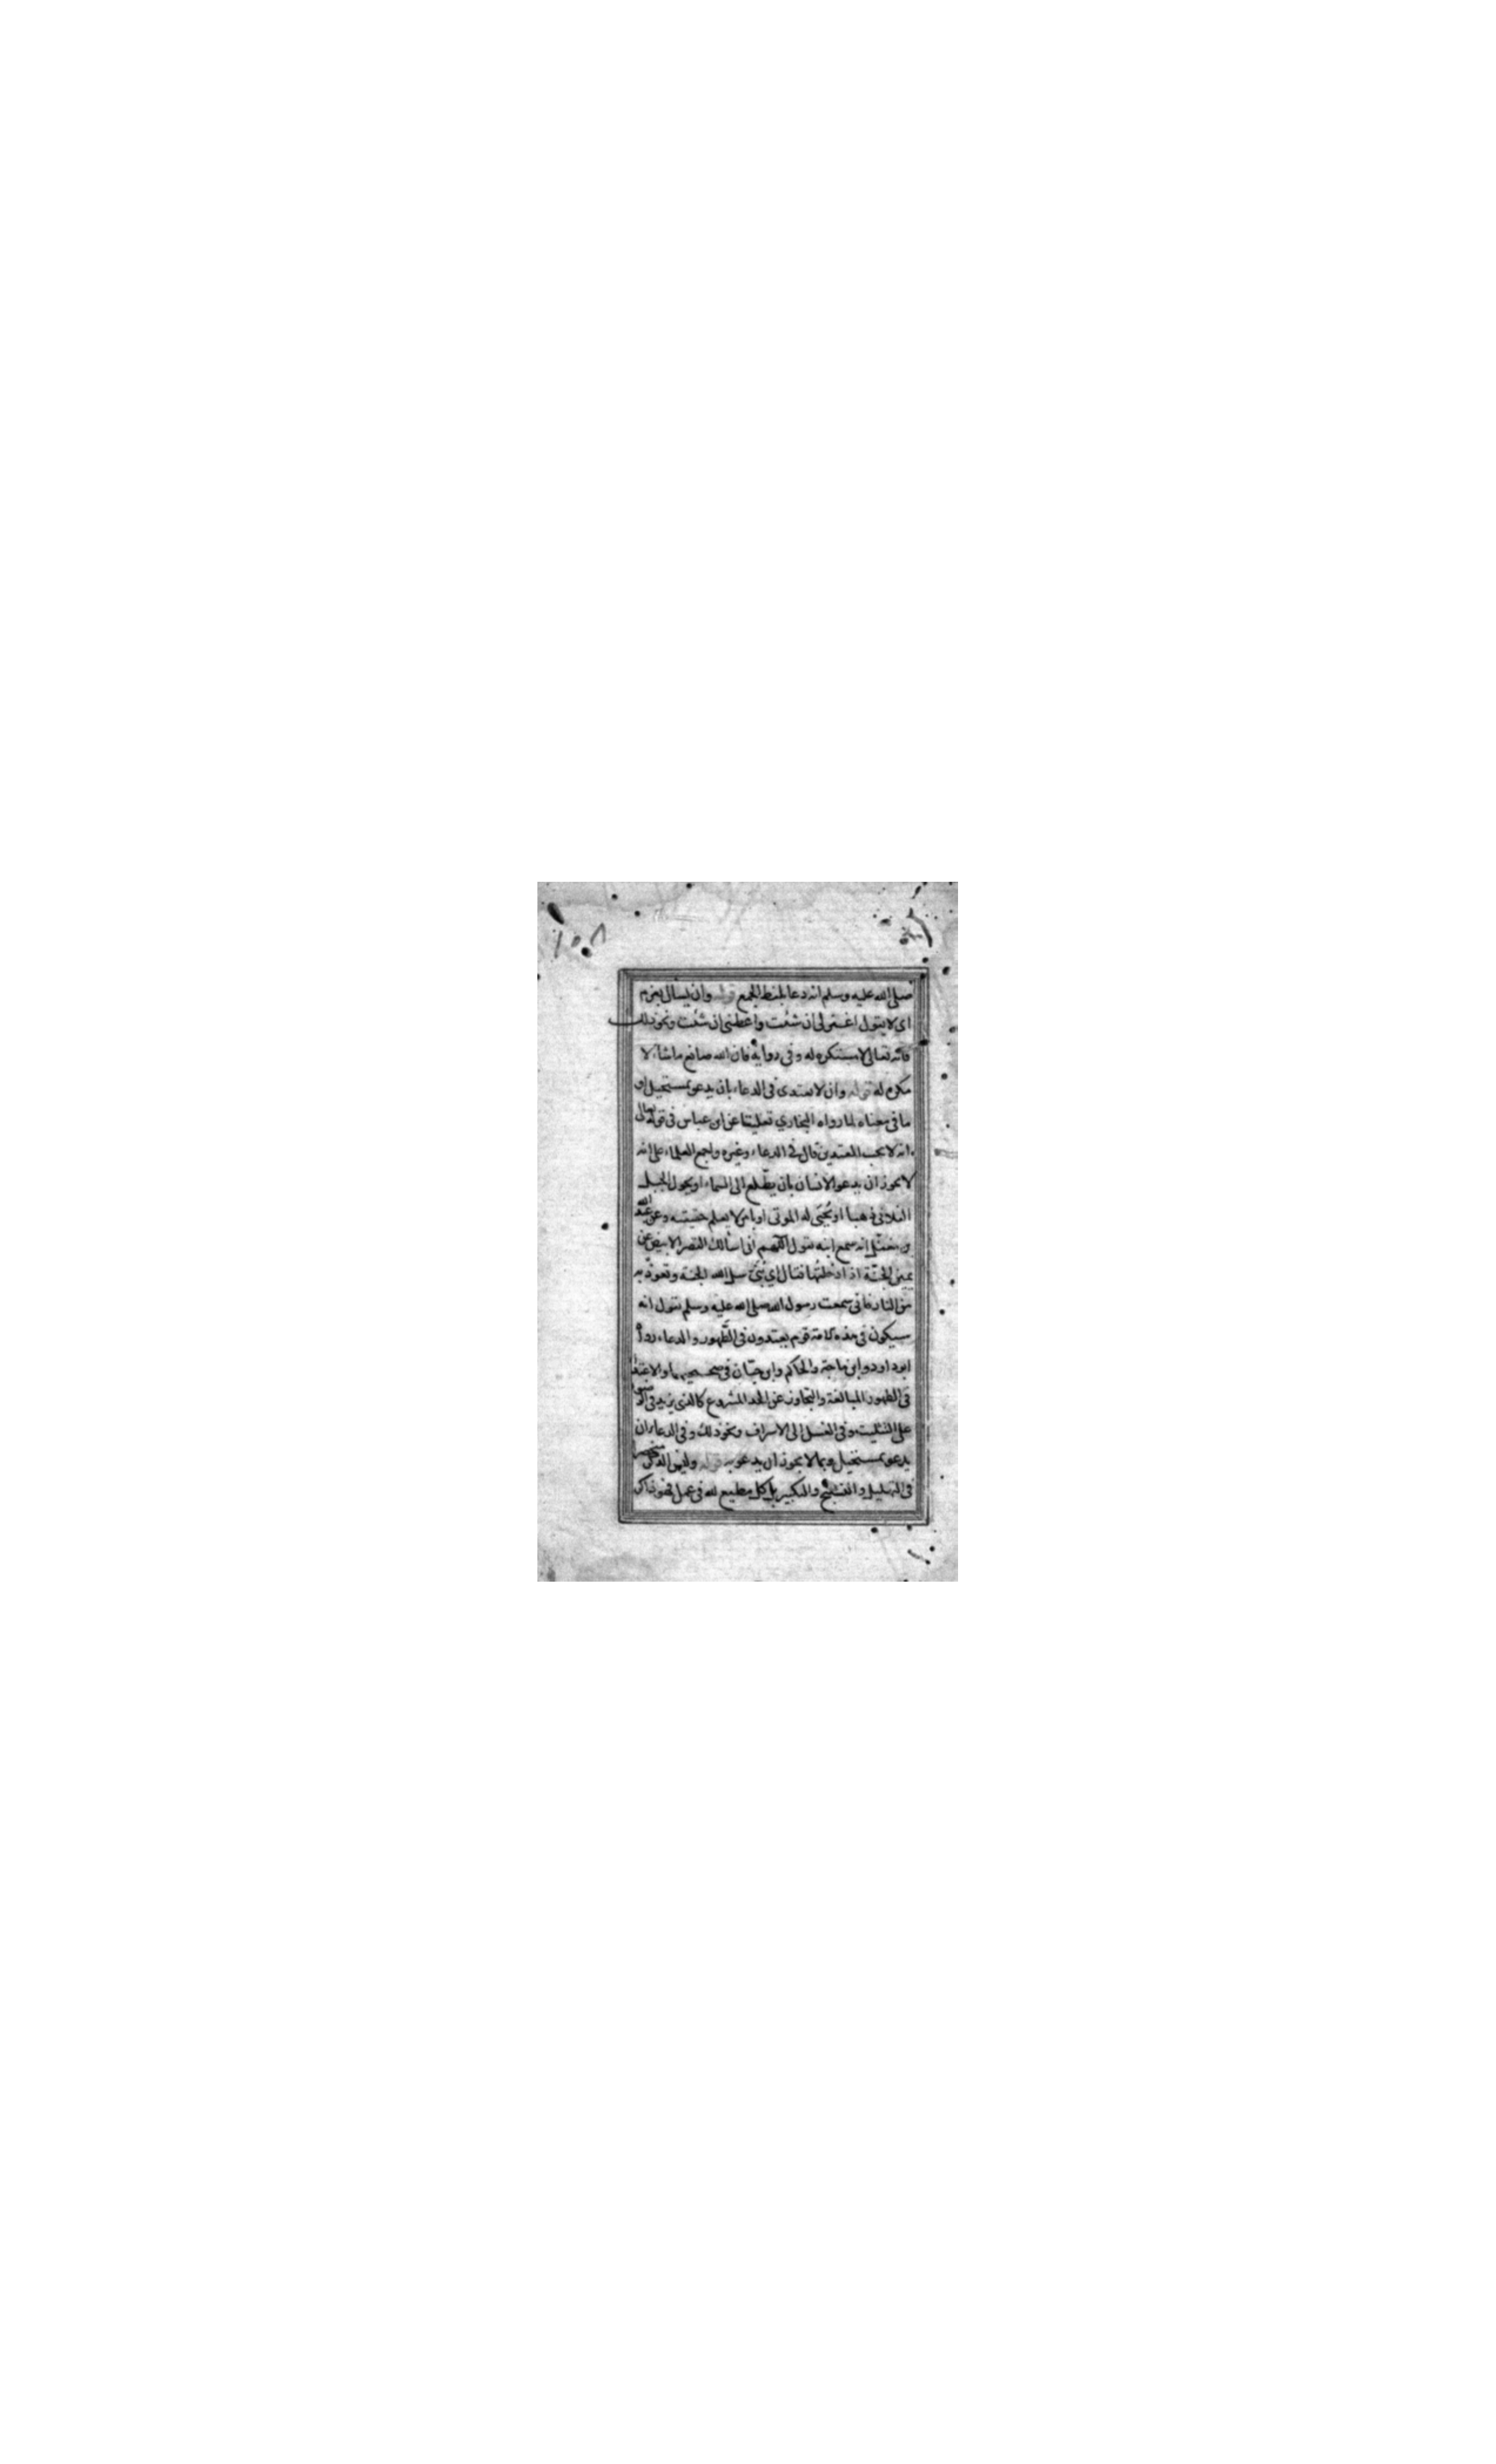 ١٠٨
صلى الله عليه وسلم انه دعا بلفظ الجمع قوله وان يسأل بعزم
اي لا يقول اغفر لي ان شئت واعطني ان شئت ونحو ذلك
فانه تعالى لا مستكره له وفي رواية فان الله صانع ما شاء لا
مكره له قوله وان لا يعتدى في الدعاء بان يدعو بمستحيل او
ما في معناه لما رواه البخاري تعليقا عن ابن عباس في قوله تعالى
انه لا يحب المعتدين قال في الدعاء وغيره واجمع العلماء على انه
لا يجوز ان يدعو الانسان بان يطّلع الى السماء او يحول الجبل
الفلاني ذهبا او يُحيى له الموتى او بامر لا يعلم حقيقته وعن عبد الله
بن مغفّل انه سمع ابنه يقول اللهم اني اسألك القصر الابيض عن
يمين الجنّة اذا دخلتُها فقال اي بُنيّ سل الله الجنة وتعوذ به
من النار فاني سمعت رسول الله صلى الله عليه وسلم يقول انه
سيكون في هذه الامة قوم يعتدون في الطَّهور والدعاء رواه
ابو داود وابن ماجة والحاكم وابن حبّان في صحيحيهما والاعتداء
في الطهور المبالغة والتجاوز عن الحد المشروع كالذي يزيد في الوضوء
على التثليث وفي الغسل الى الاسراف ونحو ذلك وفي الدعاء ان
يدعو بمستحيل وبما لا يجوز ان يدعو به قوله وليس الذكر منحصرا
في التهليل والتسبيح والتكبير بل كل مطيع لله في عمل فهو ذاكر